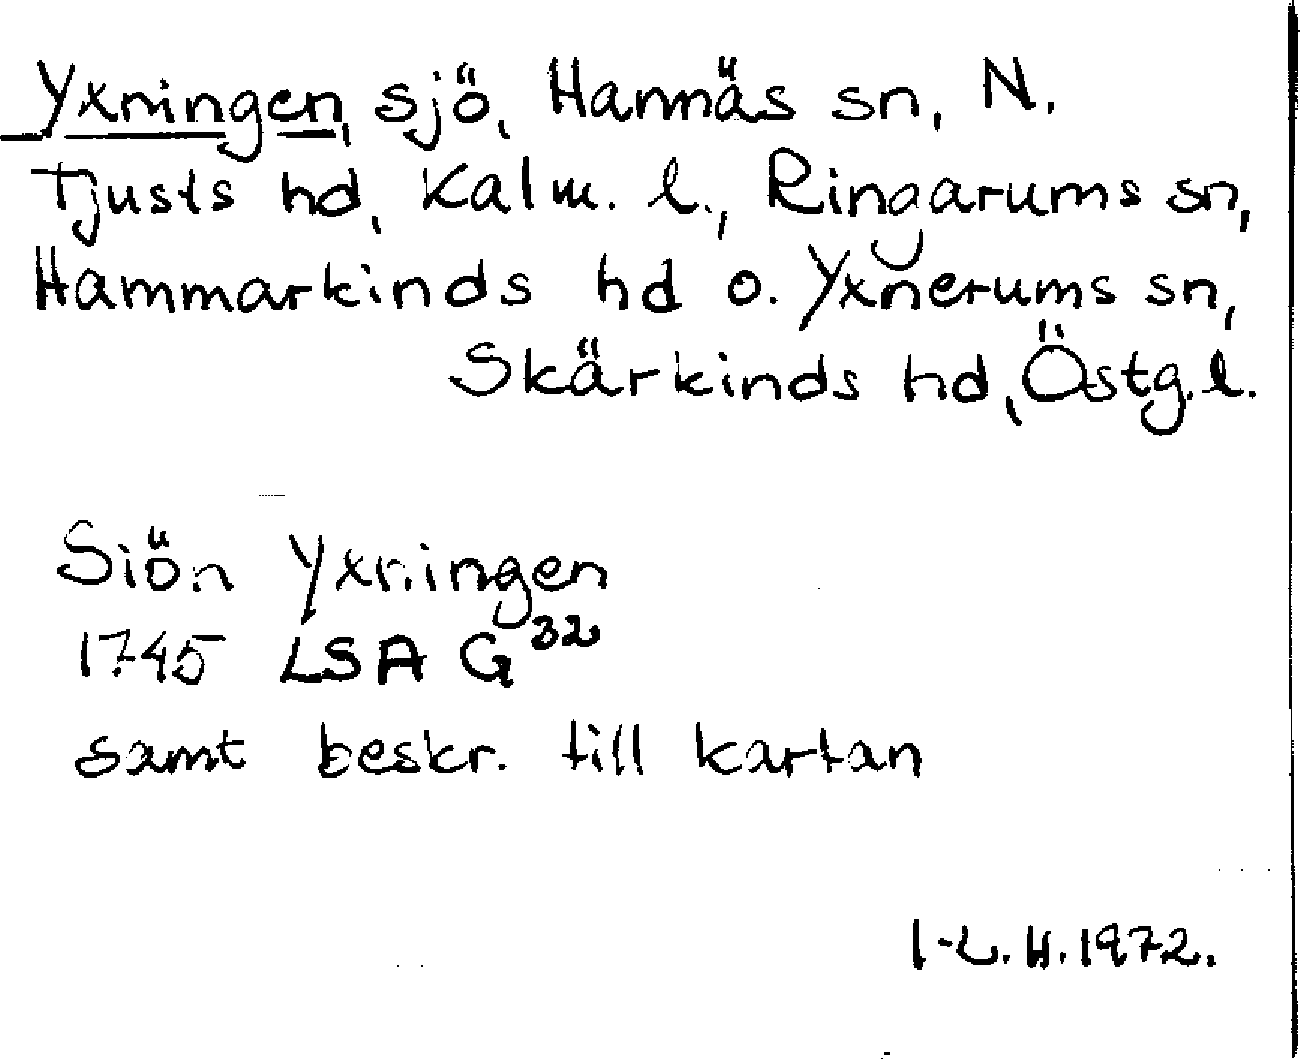 Yxningen, sjö, Hannäs sn, N.
Tjusts hd, Kalm. l., Ringarums sn,
Hammarkinds hd o. Yxnerums sn,
Skärkinds hd, Östg. l.
Siön Yxningen
1745 LSA G 32
samt beskr. till kartan
I-L. H. 1972.